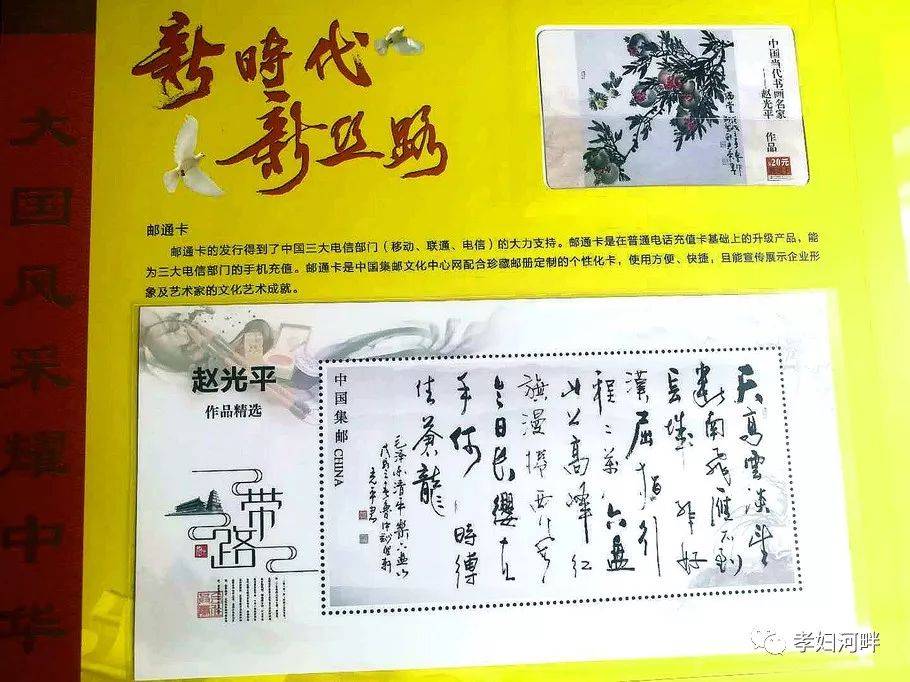 大国风采耀中华
新時代
新丝路
中国当代书画名家
——赵光平 作品
20元
邮通卡
邮通卡的发行得到了中国三大电信部门（移动、联通、电信）的大力支持。邮通卡是在普通电话充值卡基础上的升级产品，能
为三大电信部门的手机充值。邮通卡是中国集邮文化中心网配合珍藏邮册定制的个性化卡，使用方便、快捷，且能宣传展示企业形
象及艺术家的文化艺术成就。
赵光平
作品精选
一带一路
中国集邮 CHINA
天高雲淡望
断南飛雁不到
長城非好
漢屈指行
程二萬六盤
山上高峰红
旗漫捲西風
今日長纓在
手何時縛
住蒼龍
孝妇河畔